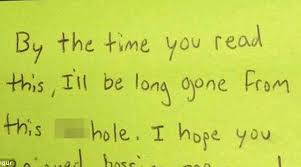 By the time you read
this, I'll be long gone from
this hole. I hope you